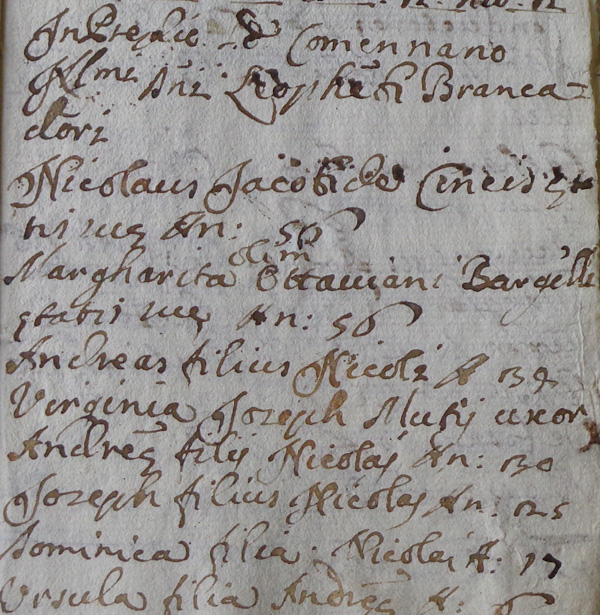 In Predio de Comennano
Illmi Dni Leopheti Branca=
dori
Nicolaus Jacobi de Cinciis ęta
tis suę An: 56
Margharita olim Ottauiani Bargelli
ętatis suę An: 56
Andreas filius Nicoli A 32
Virginia Joseph Mutij uxor
Andreę filij Nicolaj An: 30
Joseph filius Nicolaj An: 25
Dominica filia Nicolai A: 17
Ursula filia Andreę A: 6